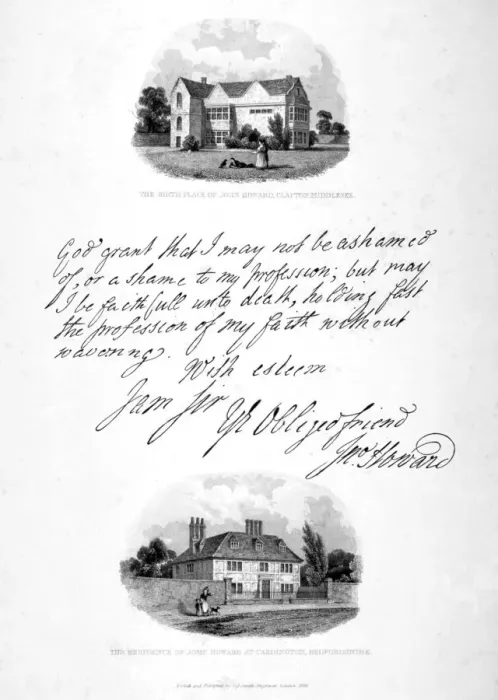 THE BIRTH PLACE OF JOHN HOWARD, CLAPTON, MIDDLESEX.
God grant that I may not be ashamed
of, or a shame to my profession; but may
I be faithfull unto death, holding fast
the profession of my faith without
wavering.
With esteem
I am Sir
Yr Obliged friend
Jno Howard
THE RESIDENCE OF JOHN HOWARD AT CARDINGTON, BEDFORDSHIRE.
London